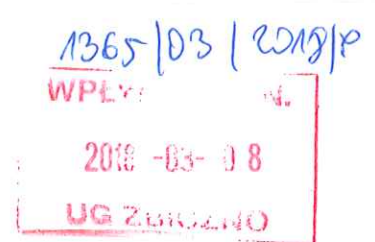 1365/03/2018/P
WPŁY
2018 -03- 08
UG ZBICZNO